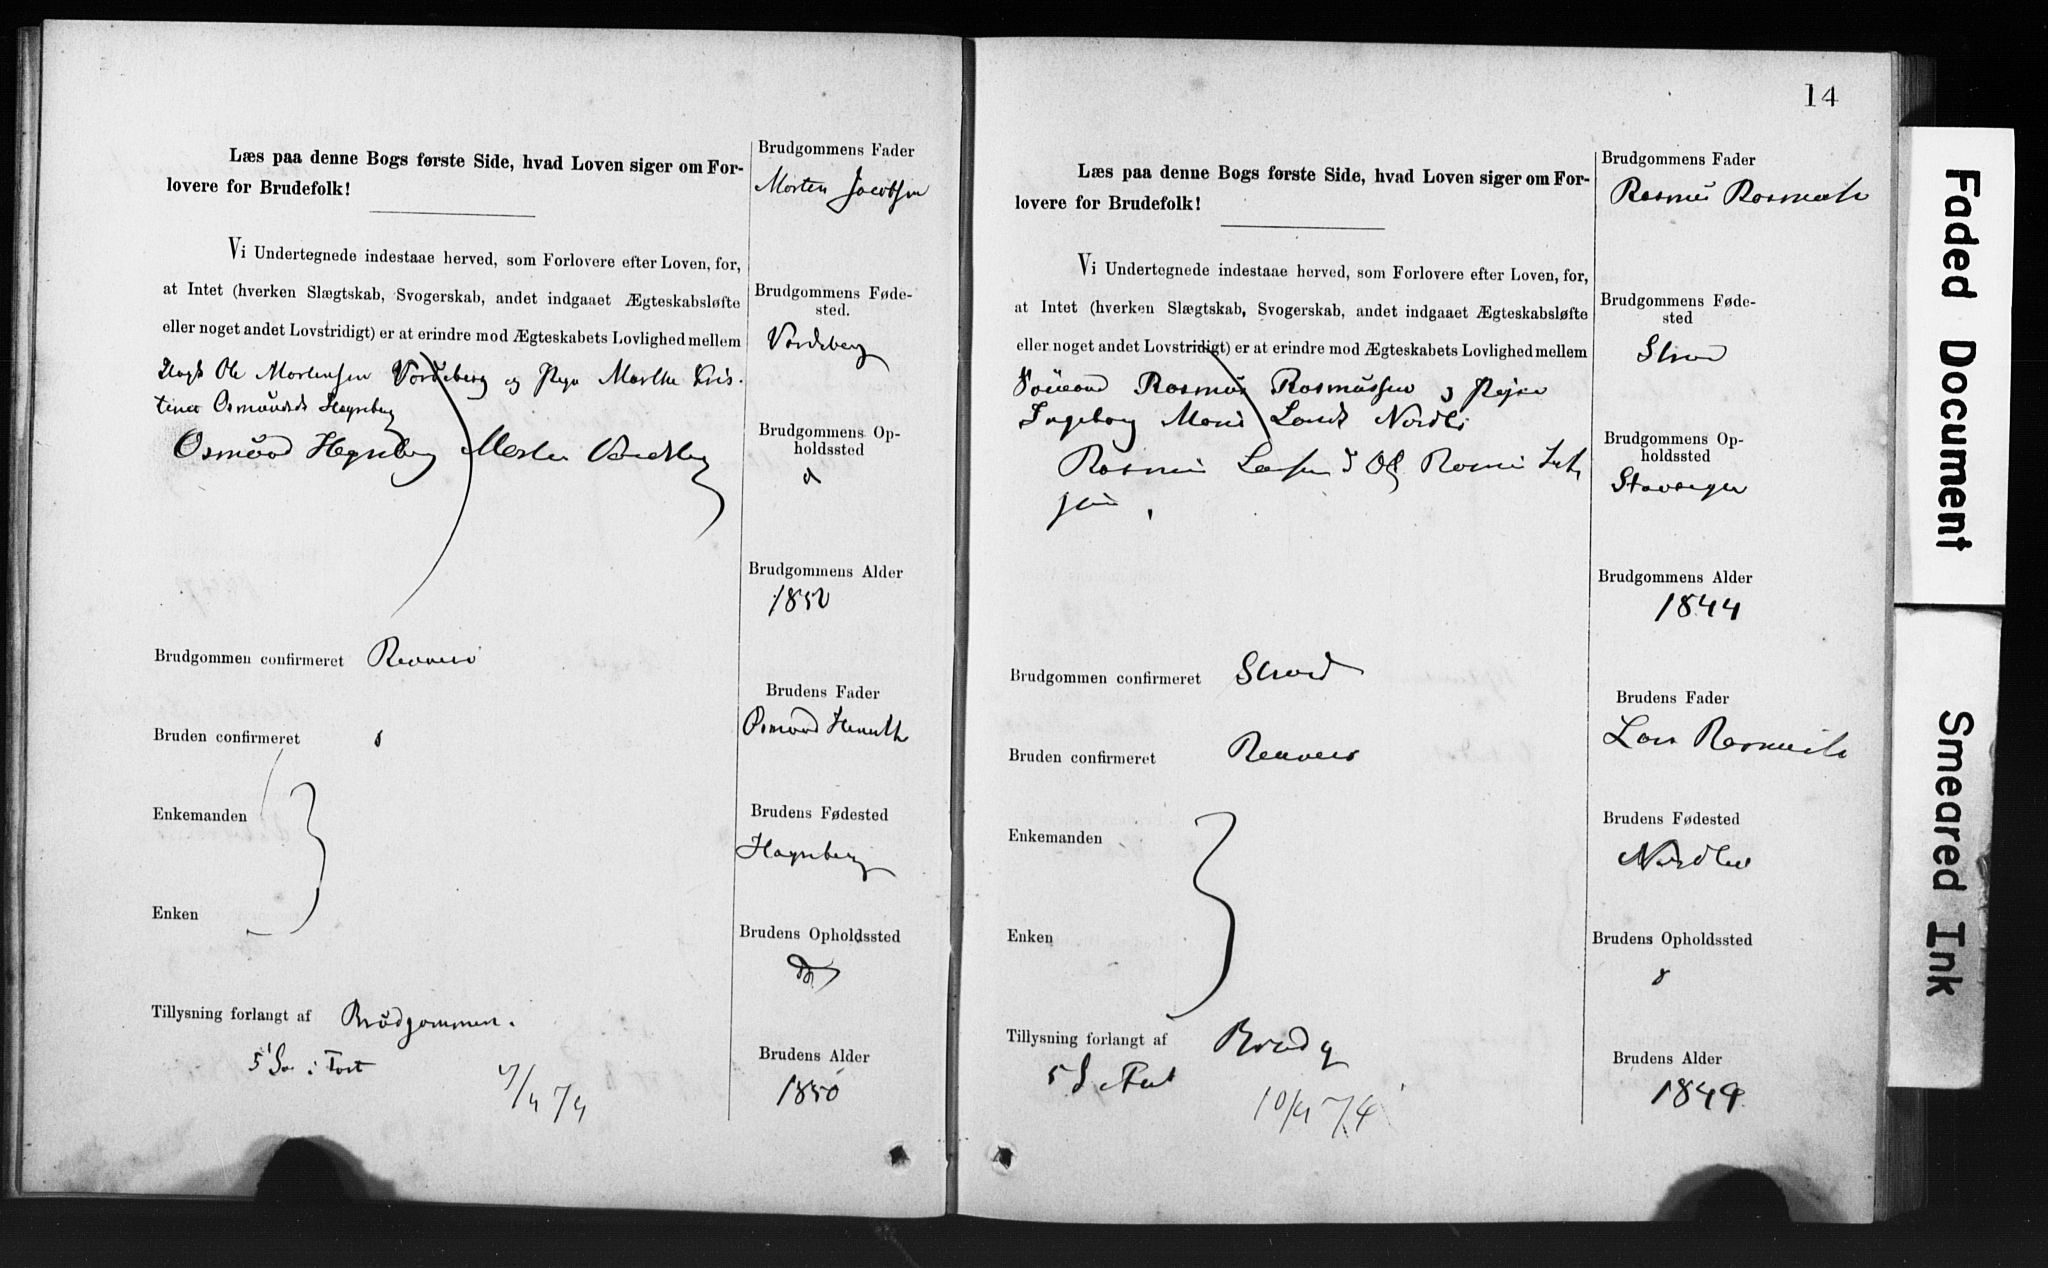 Læs paa denne Bogs første Side, hvad Loven siger om For-
lovere for Brudefolk!
Vi Undertegnede indestaae herved, som Forlovere efter Loven, for,
at Intet (hverken Slægtskab, Svogerskab, andet indgaaet Ægteskabsløfte
eller noget andet Lovstridigt) er at erindre mod Ægteskabets Lovlighed mellem
Ole Mortensen Vordeberg og Pige Marthe Kris-
tine Osmunds Hogneberg
Osmund Hogneberg Morten Vordeberg
Brudgommen confirmeret Rennesø
Bruden confirmeret
Enkemanden
Enken
Tillysning forlangt af Brudgommen.
5 S i Fast
7/4 74
Brudgommens Fader
Morten Jacobsen
Brudgommens Føde-
sted.
Vordeberg
Brudgommens Op-
holdssted
Brudgommens Alder
1850
Brudens Fader
Osmund
Brudens Fødested
Hogneberg
Brudens Opholdssted
Brudens Alder
1850
14
Læs paa denne Bogs første Side, hvad Loven siger om For-
lovere for Brudefolk!
Vi Undertegnede indestaae herved, som Forlovere efter Loven, for,
at Intet (hverken Slægtskab, Svogerskab, andet indgaaet Ægteskabsløfte
eller noget andet Lovstridigt) er at erindre mod Ægteskabets Lovlighed mellem
Rasmus Rasmussen og Pige
Ingeborg Marie Larsd Nordbø
Rasmus
Brudgommen confirmeret Strand
Bruden confirmeret Rennesø
Enkemanden
Enken
Tillysning forlangt af Brudg
5 S Fast
10/4 74
Brudgommens Fader
Rasmus Rasmus
Brudgommens Føde-
sted
Strand
Brudgommens Op-
holdssted
Stavanger
Brudgommens Alder
1844
Brudens Fader
Lars Rasmus
Brudens Fødested
Nordbø
Brudens Opholdssted
Brudens Alder
1849
Faded Document
Smeared Ink